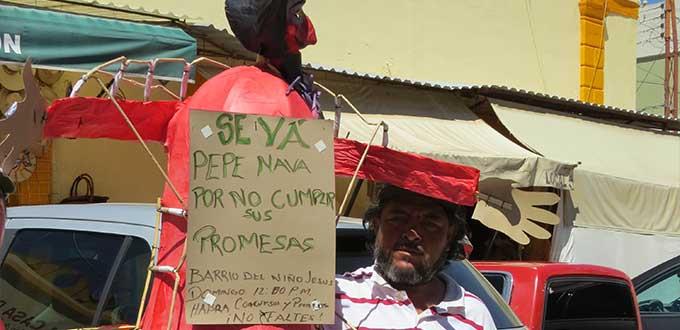 ON
SE VA
PEPE NAVA
POR NO CUMPLIR
SUS
PROMESAS
BARRIO DEL NIÑO JESUS
DOMINGO 12:00 P.M
HABRA CONCURSO Y
¡NO FALTES!